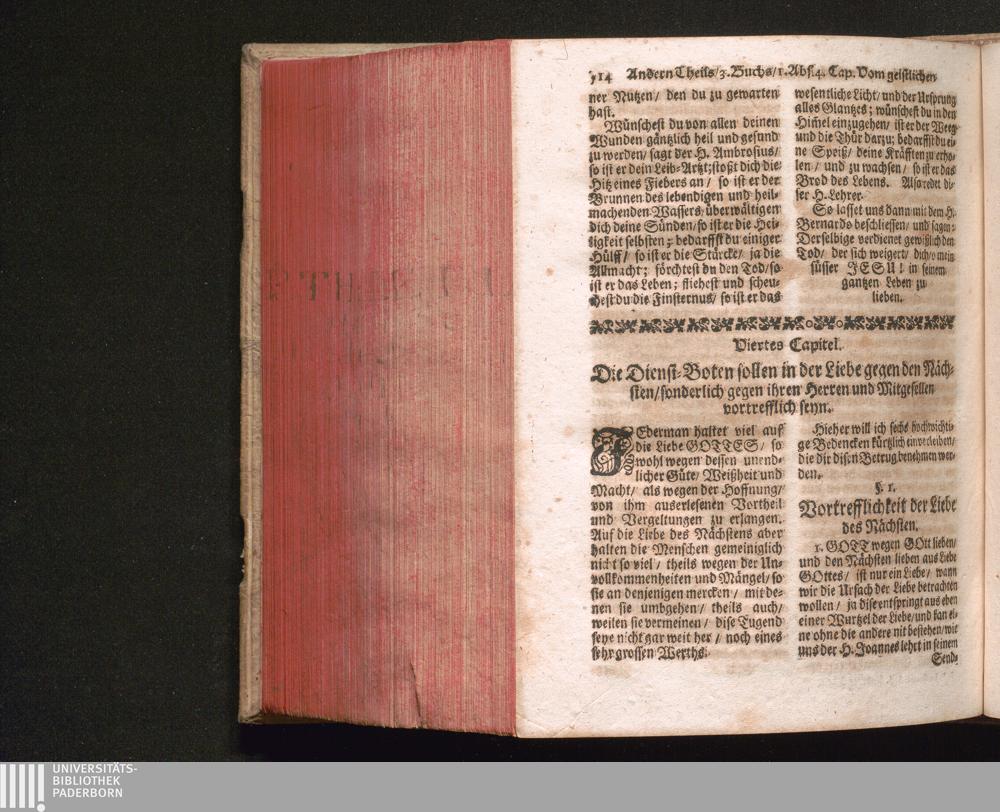 714 Andern Theils/3. Buchs/1. Abs. 4. Cap. Vom geistlichen
ner Nutzen/ den du zu gewarten
hast.
Wünschest du von allen deinen
Wunden gäntzlich heil und gesund
zu werden/ sagt der H. Ambrosius/
so ist er dein Leib-Artzt; stoßt dich die
Hitz eines Fiebers an/ so ist er der
Brunnen des lebendigen und heil-
machenden Wassers; überwältigen
dich deine Sünden/ so ist er die Hei-
ligkeit selbsten; bedarffst du einiger
Hülff/ so ist er die Stärcke/ ja die
Allmacht; förchtest du den Tod/ so
ist er das Leben; fliehest und scheu-
hest du die Finsternus/ so ist er das
wesentliche Licht/ und der Ursprung
alles Glantzes; wünschest du in den
Him̃el einzugehen/ ist er der Weeg
und die Thür darzu; bedarffst du ei-
ne Speiß/ deine Kräfften zu erho-
len/ und zu wachsen/ so ist er das
Brod des Lebens. Also redet di-
ser H. Lehrer.
So lasset uns dann mit dem H.
Bernardo beschliessen/ und sagen:
Derselbige verdienet gewißlich den
Tod/ der sich weigert/ dich/ o mein
süsser JESU! in seinem
gantzen Leben zu
lieben.
Viertes Capitel.
Die Dienst-Boten sollen in der Liebe gegen den Näch-
sten/ sonderlich gegen ihren Herren und Mitgesellen
vortrefflich seyn.
JEderman haltet viel auß
die Liebe GOTTES/ so
wohl wegen dessen unend-
licher Güte/ Weißheit und
Macht/ als wegen der Hoffnung/
von ihm auserlesenen Vortheil
und Vergeltungen zu erlangen.
Auf die Liebe des Nächstens aber
halten die Menschen gemeiniglich
nicht so viel/ theils wegen der Un-
vollkommenheiten und Mängel/ so
sie an denjenigen mercken/ mit de-
nen sie umbgehen/ theils auch/
weilen sie vermeinen/ dise Tugend
seye nicht gar weit her/ noch eines
sehr grossen Werths.
Hieher will ich sechs hochwichti-
ge Bedencken kürtzlich einverleiben/
die dir disen Betrug benehmen wer-
den.
§. 1.
Vortrefflichkeit der Liebe
des Nächsten.
1. GOTT wegen GOtt lieben/
und den Nächsten lieben aus Liebe
GOttes/ ist nur ein Liebe/ wann
wir die Ursach der Liebe betrachten
wollen/ ja dise entspringt aus eben
einer Wurtzel der Liebe/ und kan ei-
ne ohne die andere nit bestehen/ wie
uns der H. Joannes lehrt in seinem
Send-
UNIVERSITÄTS-
BIBLIOTHEK
PADERBORN